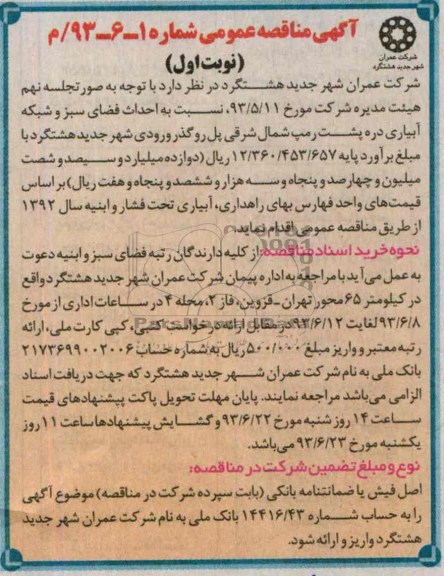 آگهی مناقصه عمومی شماره ۱-۶-۹۳/م
شرکت عمران
شهر جدید هشتگرد
(نوبت اول)
شرکت عمران شهر جدید هشتگرد در نظر دارد با توجه به صورتجلسه نهم
هیئت مدیره شرکت مورخ ۹۳/۵/۱۱، نسبت به احداث فضای سبز و شبکه
آبیاری دره پشت رمپ شمال شرقی پل روگذر ورودی شهر جدید هشتگرد با
مبلغ برآورد پایه ۱۲/۳۶۰/۴۵۳/۶۵۷ ریال (دوازده میلیارد و سیصد و شصت
میلیون و چهارصد و پنجاه و سه هزار و ششصد و پنجاه و هفت ریال) بر اساس
قیمت‌های واحد فهارس بهای راهداری، آبیاری تحت فشار و ابنیه سال ۱۳۹۲
از طریق مناقصه عمومی اقدام نماید.
نحوه خرید اسناد مناقصه: از کلیه دارندگان رتبه فضای سبز و ابنیه دعوت
به عمل می‌آید با مراجعه به اداره پیمان شرکت عمران شهر جدید هشتگرد واقع
در کیلومتر ۶۵ محور تهران-قزوین، فاز ۲، محله ۴ در ساعات اداری از مورخ
۹۳/۶/۸ لغایت ۹۳/۶/۱۲ در مقابل ارائه درخواست کتبی، کپی کارت ملی، ارائه
رتبه معتبر و واریز مبلغ ۵۰۰/۰۰۰ ریال به شماره حساب ۲۱۷۳۶۹۹۰۰۲۰۰۶
بانک ملی به نام شرکت عمران شهر جدید هشتگرد که جهت دریافت اسناد
الزامی می‌باشد مراجعه نمایند. پایان مهلت تحویل پاکت پیشنهادهای قیمت
ساعت ۱۴ روز شنبه مورخ ۹۳/۶/۲۲ و گشایش پیشنهادها ساعت ۱۱ روز
یکشنبه مورخ ۹۳/۶/۲۳ می‌باشد.
نوع و مبلغ تضمین شرکت در مناقصه:
اصل فیش یا ضمانتنامه بانکی (بابت سپرده شرکت در مناقصه) موضوع آگهی
را به حساب شماره ۱۴۴۱۶/۴۳ بانک ملی به نام شرکت عمران شهر جدید
هشتگرد واریز و ارائه شود.